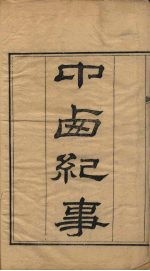 中西紀事